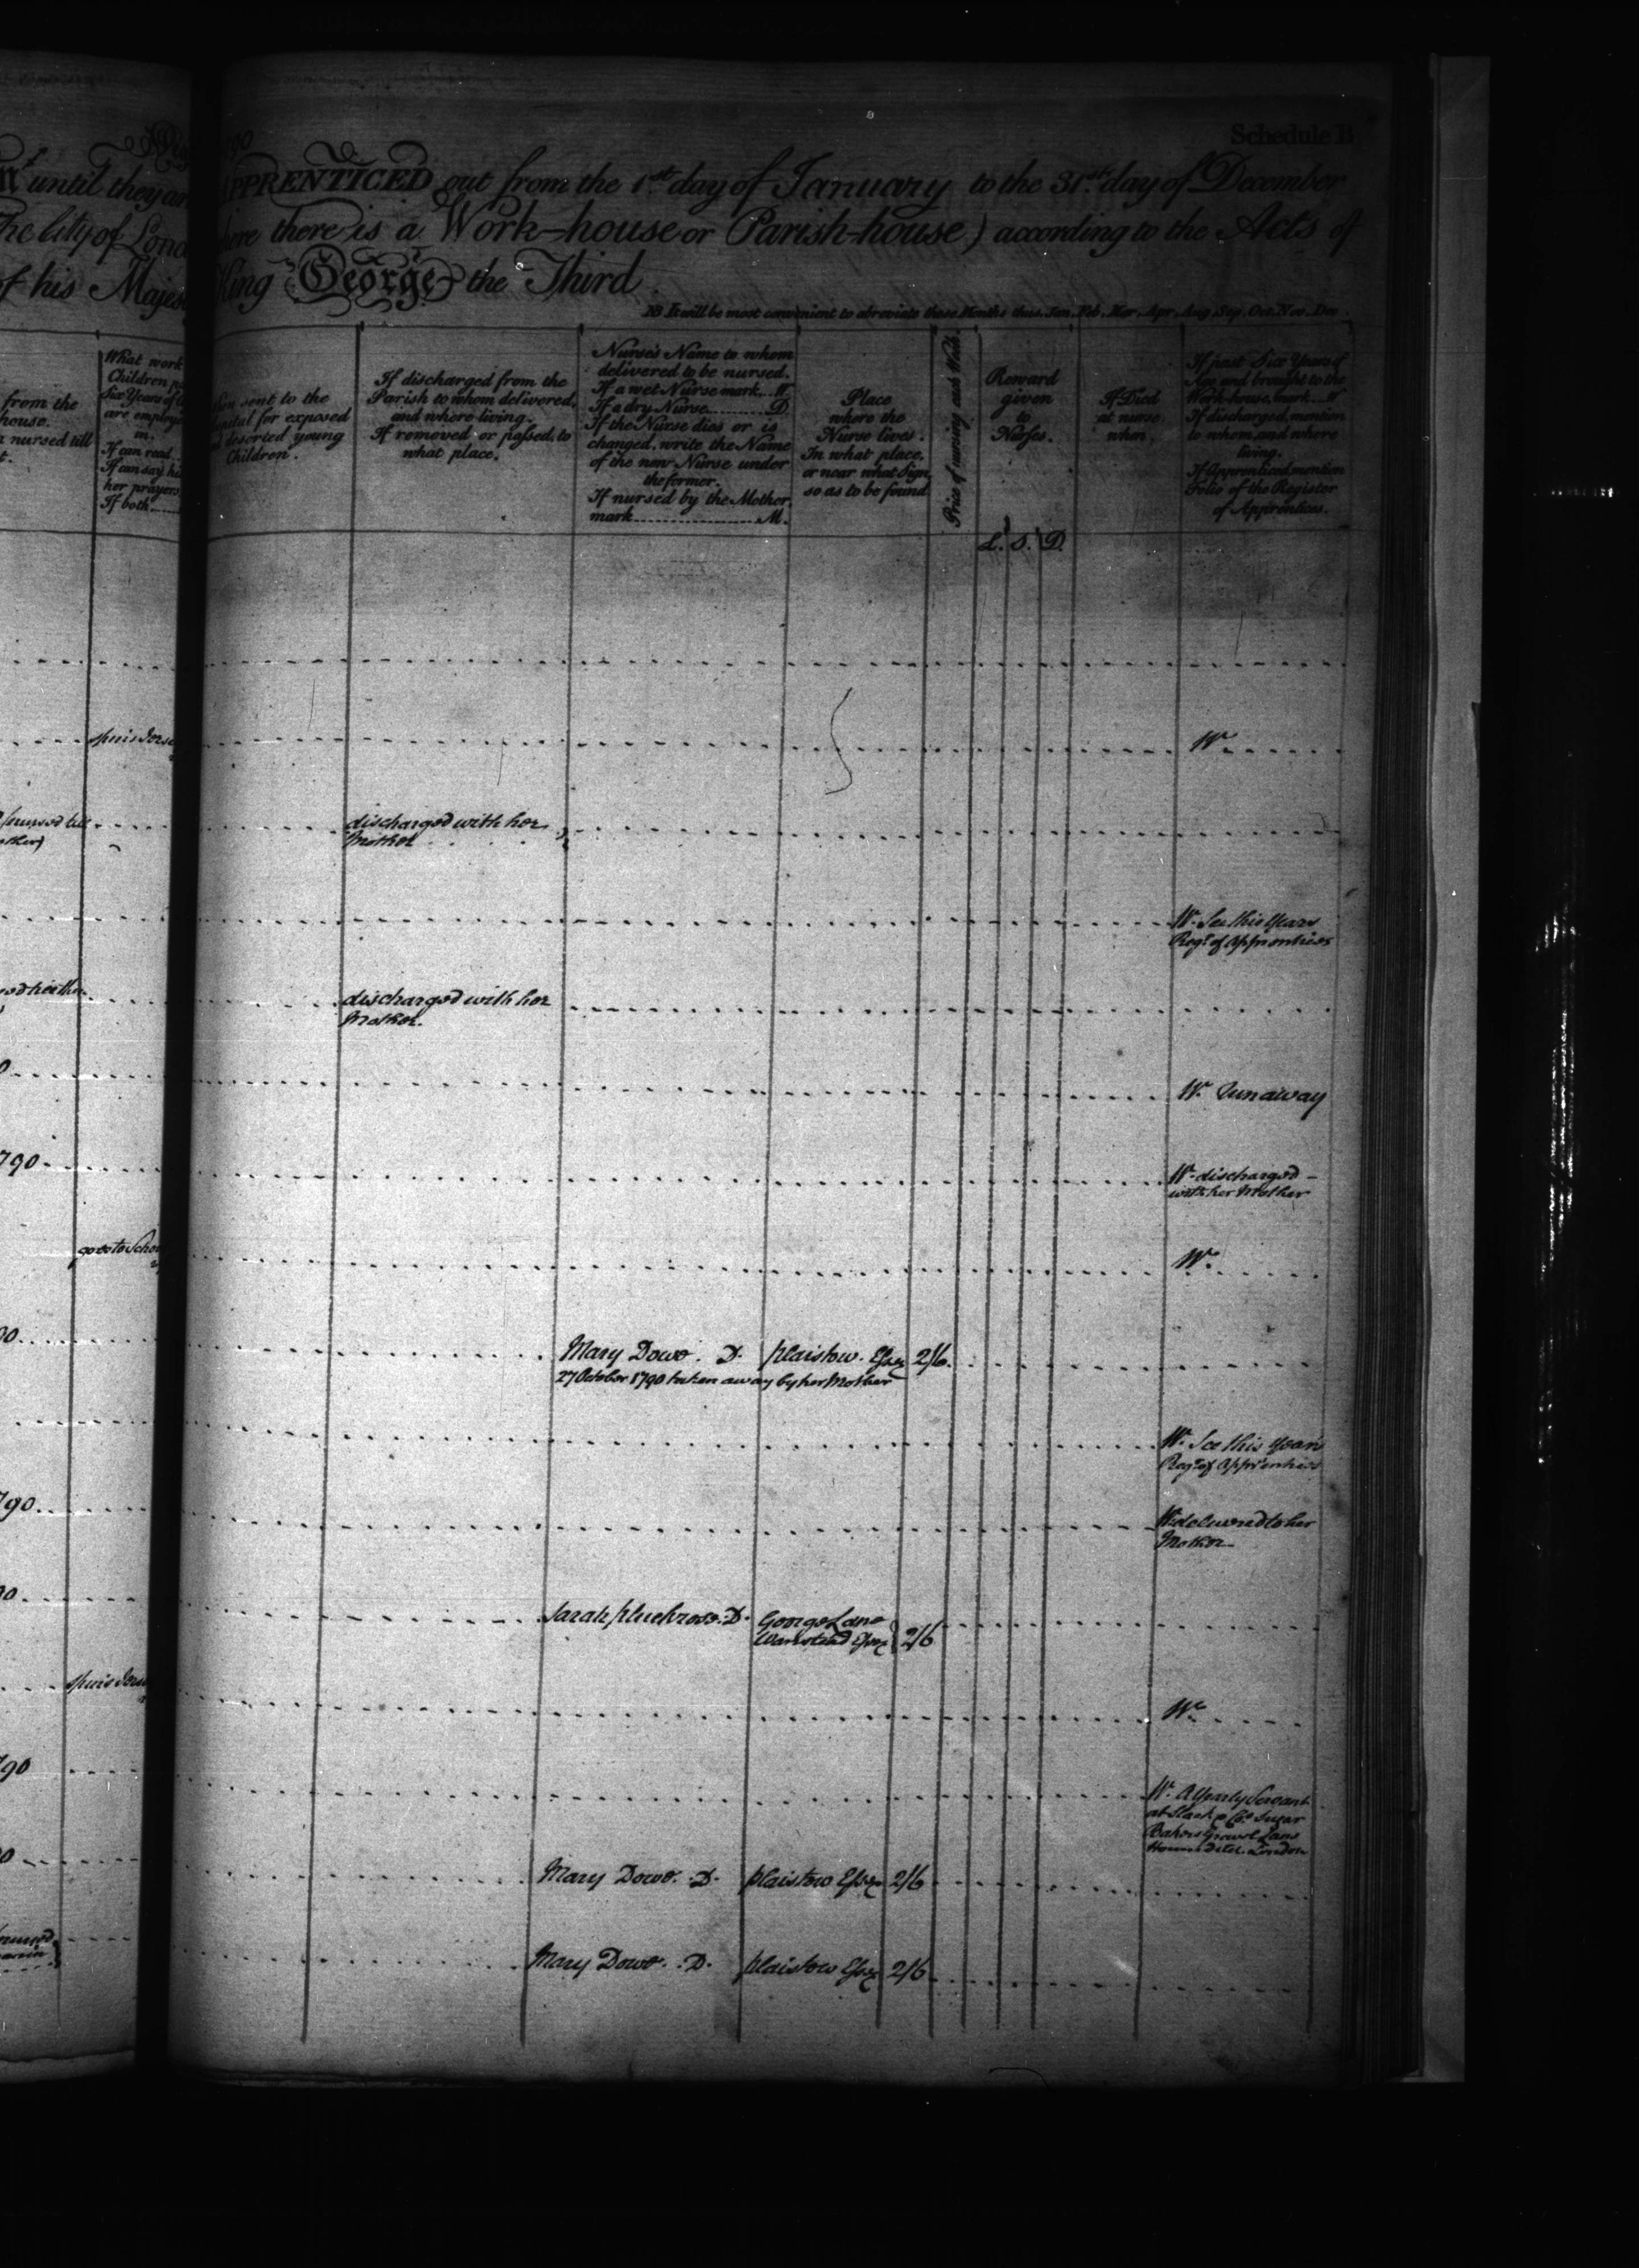 1790
Schedule B
until they are
APPRENTICED out from the 1st day of January to the 31st day of December
The City of London
where there is a Work-house or Parish-house) according to the Acts of
of his Majesty
King George the Third
NB It will be most convenient to abreviate these Months thus. Jan. Feb. Mar. Apr. Aug. Sep. Oct. Nov. Dec.
from the
house.
nursed till
What work
Children
Six Years of
are employ
in.
If can read
If can say his
her prayers
If both
When sent to the
Hospital for exposed
and deserted young
Children.
If discharged from the
Parish to whom delivered,
and where living.
If removed or passed, to
what place.
Nurse's Name to whom
delivered to be nursed.
If a wet Nurse mark W.
If a dry Nurse D.
If the Nurse dies or is
changed, write the Name
of the new Nurse under
the former.
If nursed by the Mother,
mark M.
Place
where the
Nurse lives.
In what place,
or near what Sign,
so as to be found
Price of nursing each Week.
Reward
given
to
Nurses.
L. S. D.
If Died
at nurse
when.
If past Six Years of
Age and brought to the
Work-house, mark W
If discharged, mention
to whom, and where
living.
If Apprenticed, mention
Folio of the Register
of Apprentices.
W
nursed till
discharged with her
Mother
W. See this Years
Regr. of Apprentices
discharged with her
Mother.
W. Runaway
790
W. discharged
with her Mother
goes to School
W.
Mary Dowe. D. plaistow. Essex 2/6
27 October 1790 taken away by her Mother
W. See this Years
Regr. of Apprentices
790
W. delivered to her
Mother
Sarah D. George Lane
Wanstead Essex 2/6
W.
790
W. A Yearly Servant
at Slack & Co. Sugar
Bakers Gravel Lane
Houndsditch London
Mary Dowe. D. plaistow Essex 2/6
nursed
Mary Dowe. D. plaistow Essex 2/6